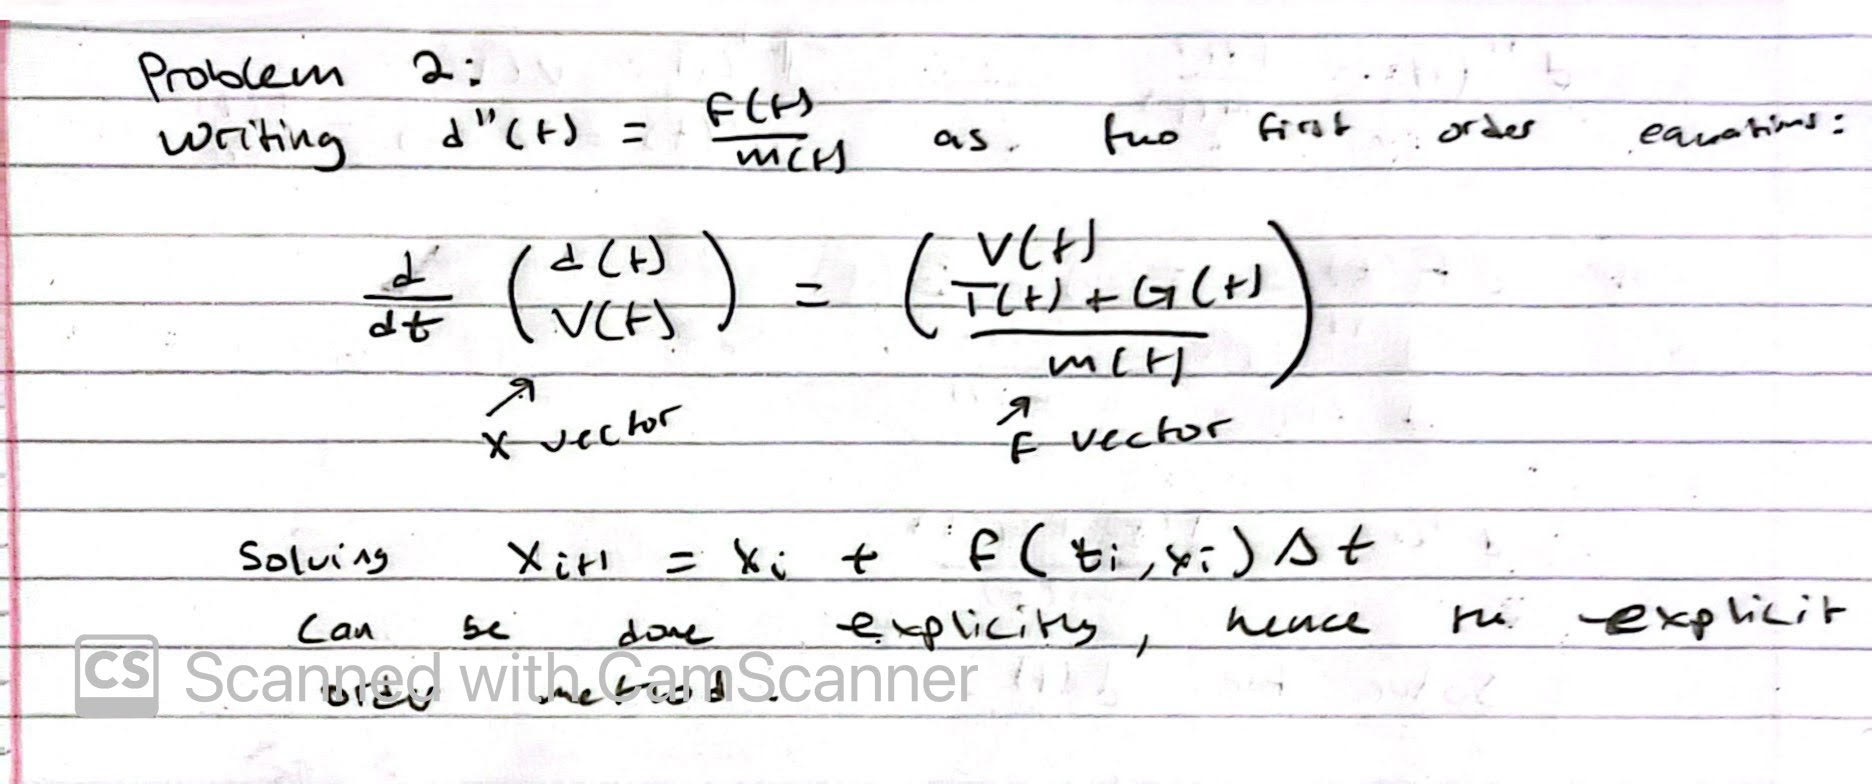 Problem 2:
Writing d"(t) = F(t) / m(t) as two first order equations:
d/dt ( d(t) V(t) ) = ( V(t) (T(t) + G(t)) / m(t) )
x vector F vector
Solving x_{i+1} = x_i + f(t_i, x_i) Δt
can be done explicitly, hence the explicit
CS Scanned with CamScanner
method.